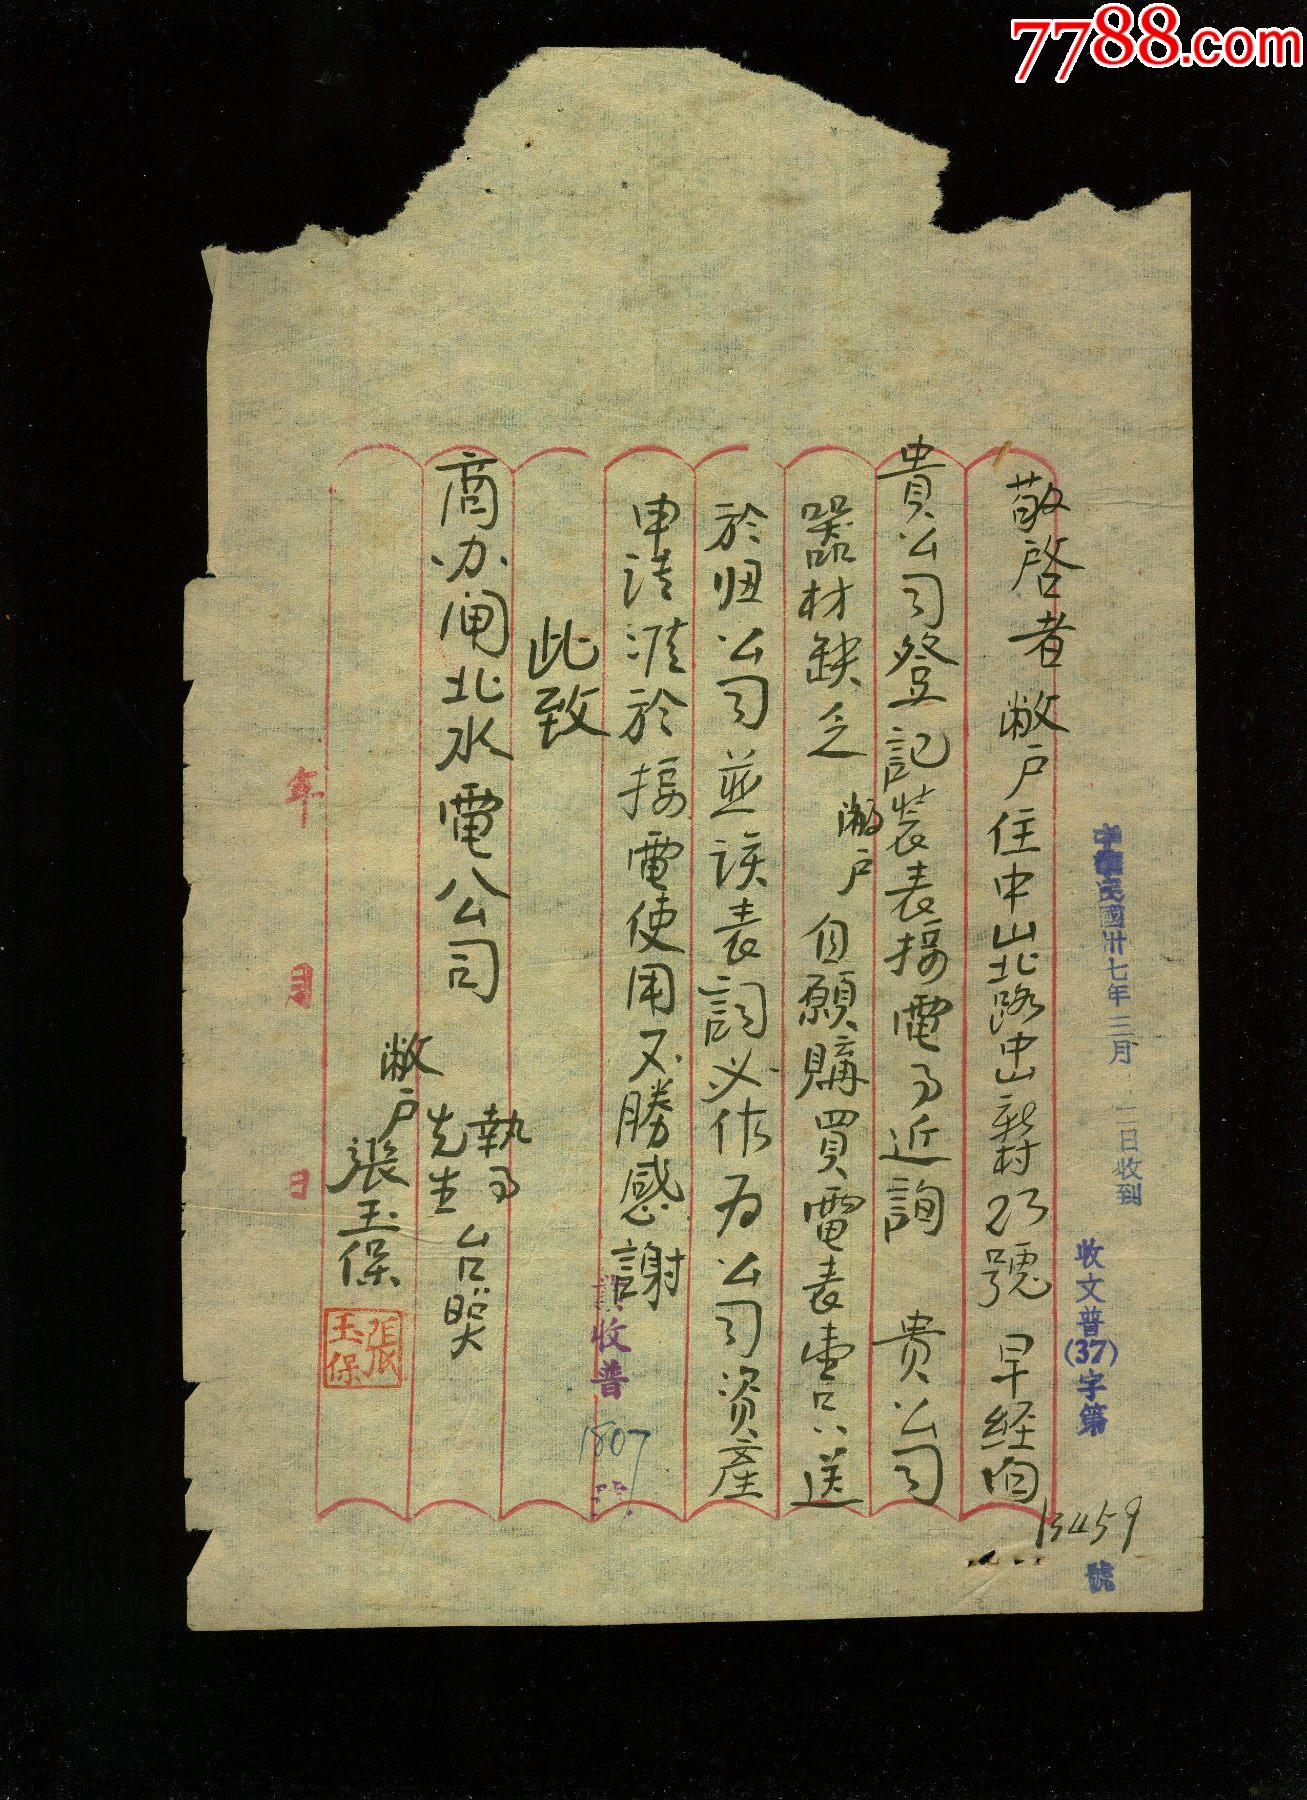 7788.com
敬啓者 敝户住中山北路中山新村23號 早経向
貴公司登記装表接電事近詢 贵公司
器材缺乏 敝户 自願購買電表壹只送
於归公司並该表詞必作为公司资產
申请准於接電使用不勝感謝
此致
商办闸北水電公司
執事先生 台照
敝户 張玉保
張玉保
年 月 日
中華民國卅七年三月 二日收到
收文普(37)字第 13459 號
收普 1807